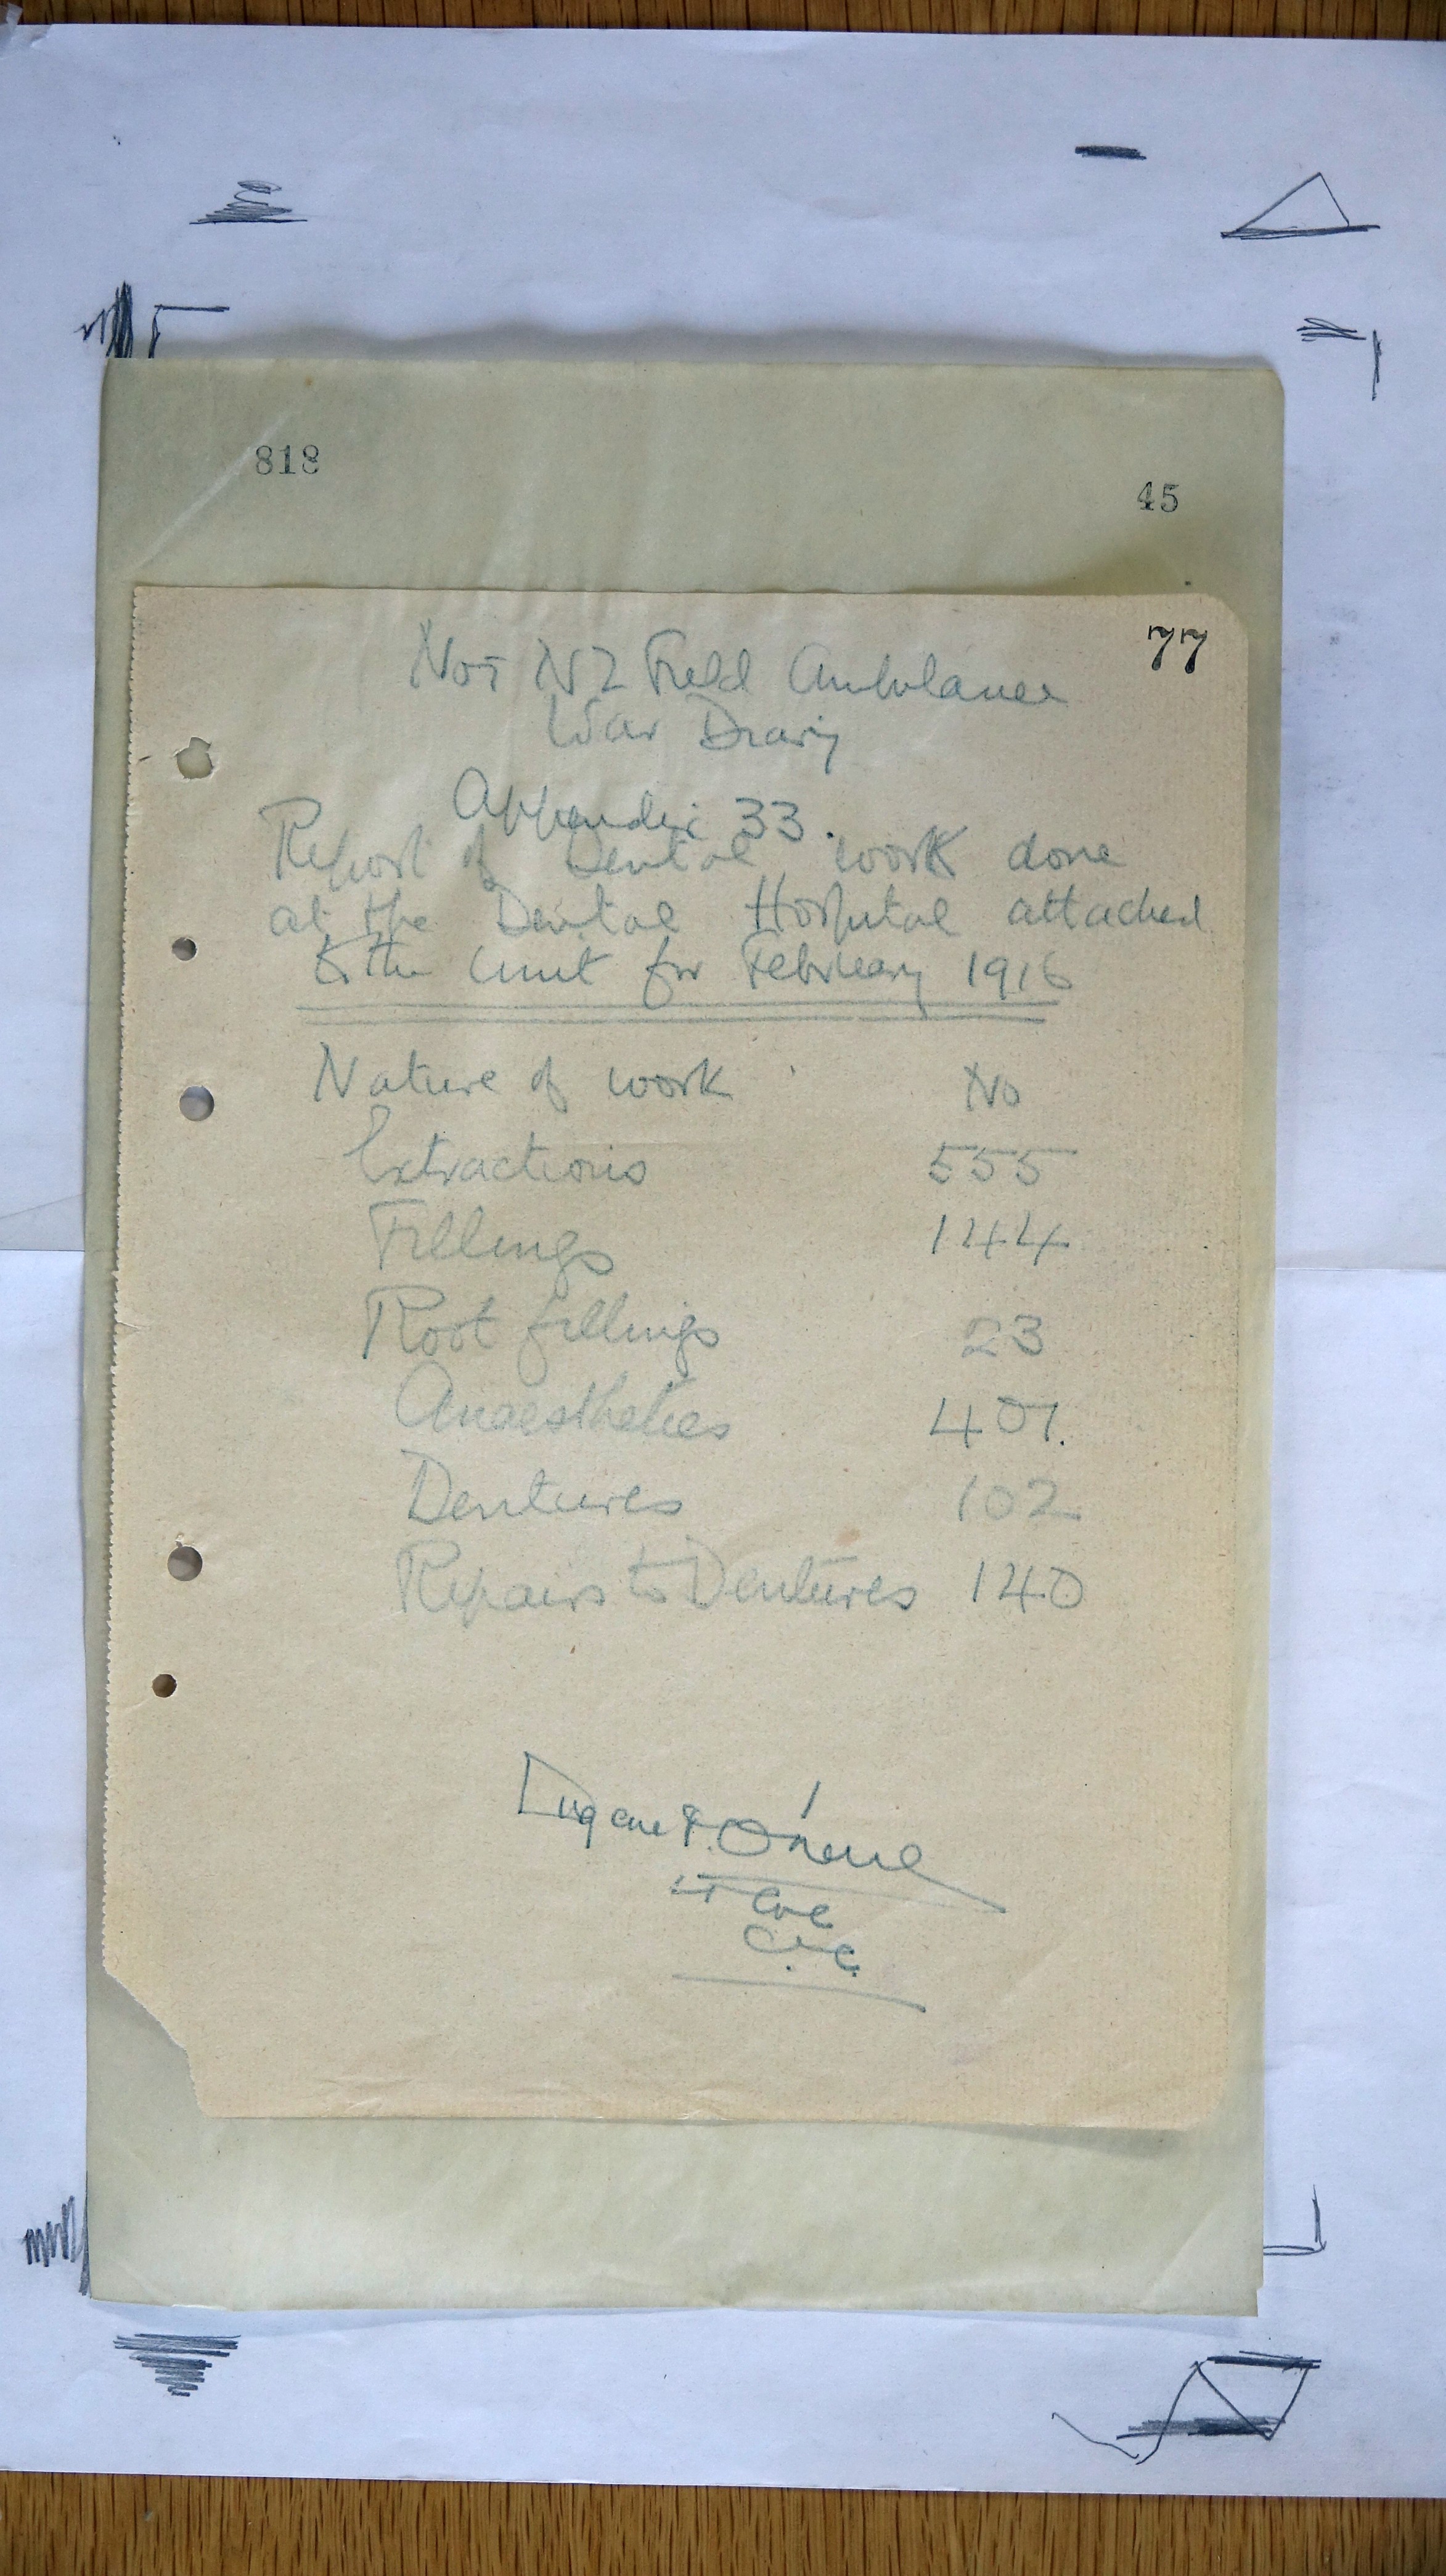 818
45
77
No 1 NZ Field Ambulance
War Diary
Appendix 33.
Report of Dental work done
at the Dental Hospital attached
to the Unit for February 1916
Nature of work No
Extractions 555
Fillings 144
Root fillings 23
Anaesthetics 407.
Dentures 102
Repairs to Dentures 140
Eugene J. O'Neill
Lt Col
O.C.